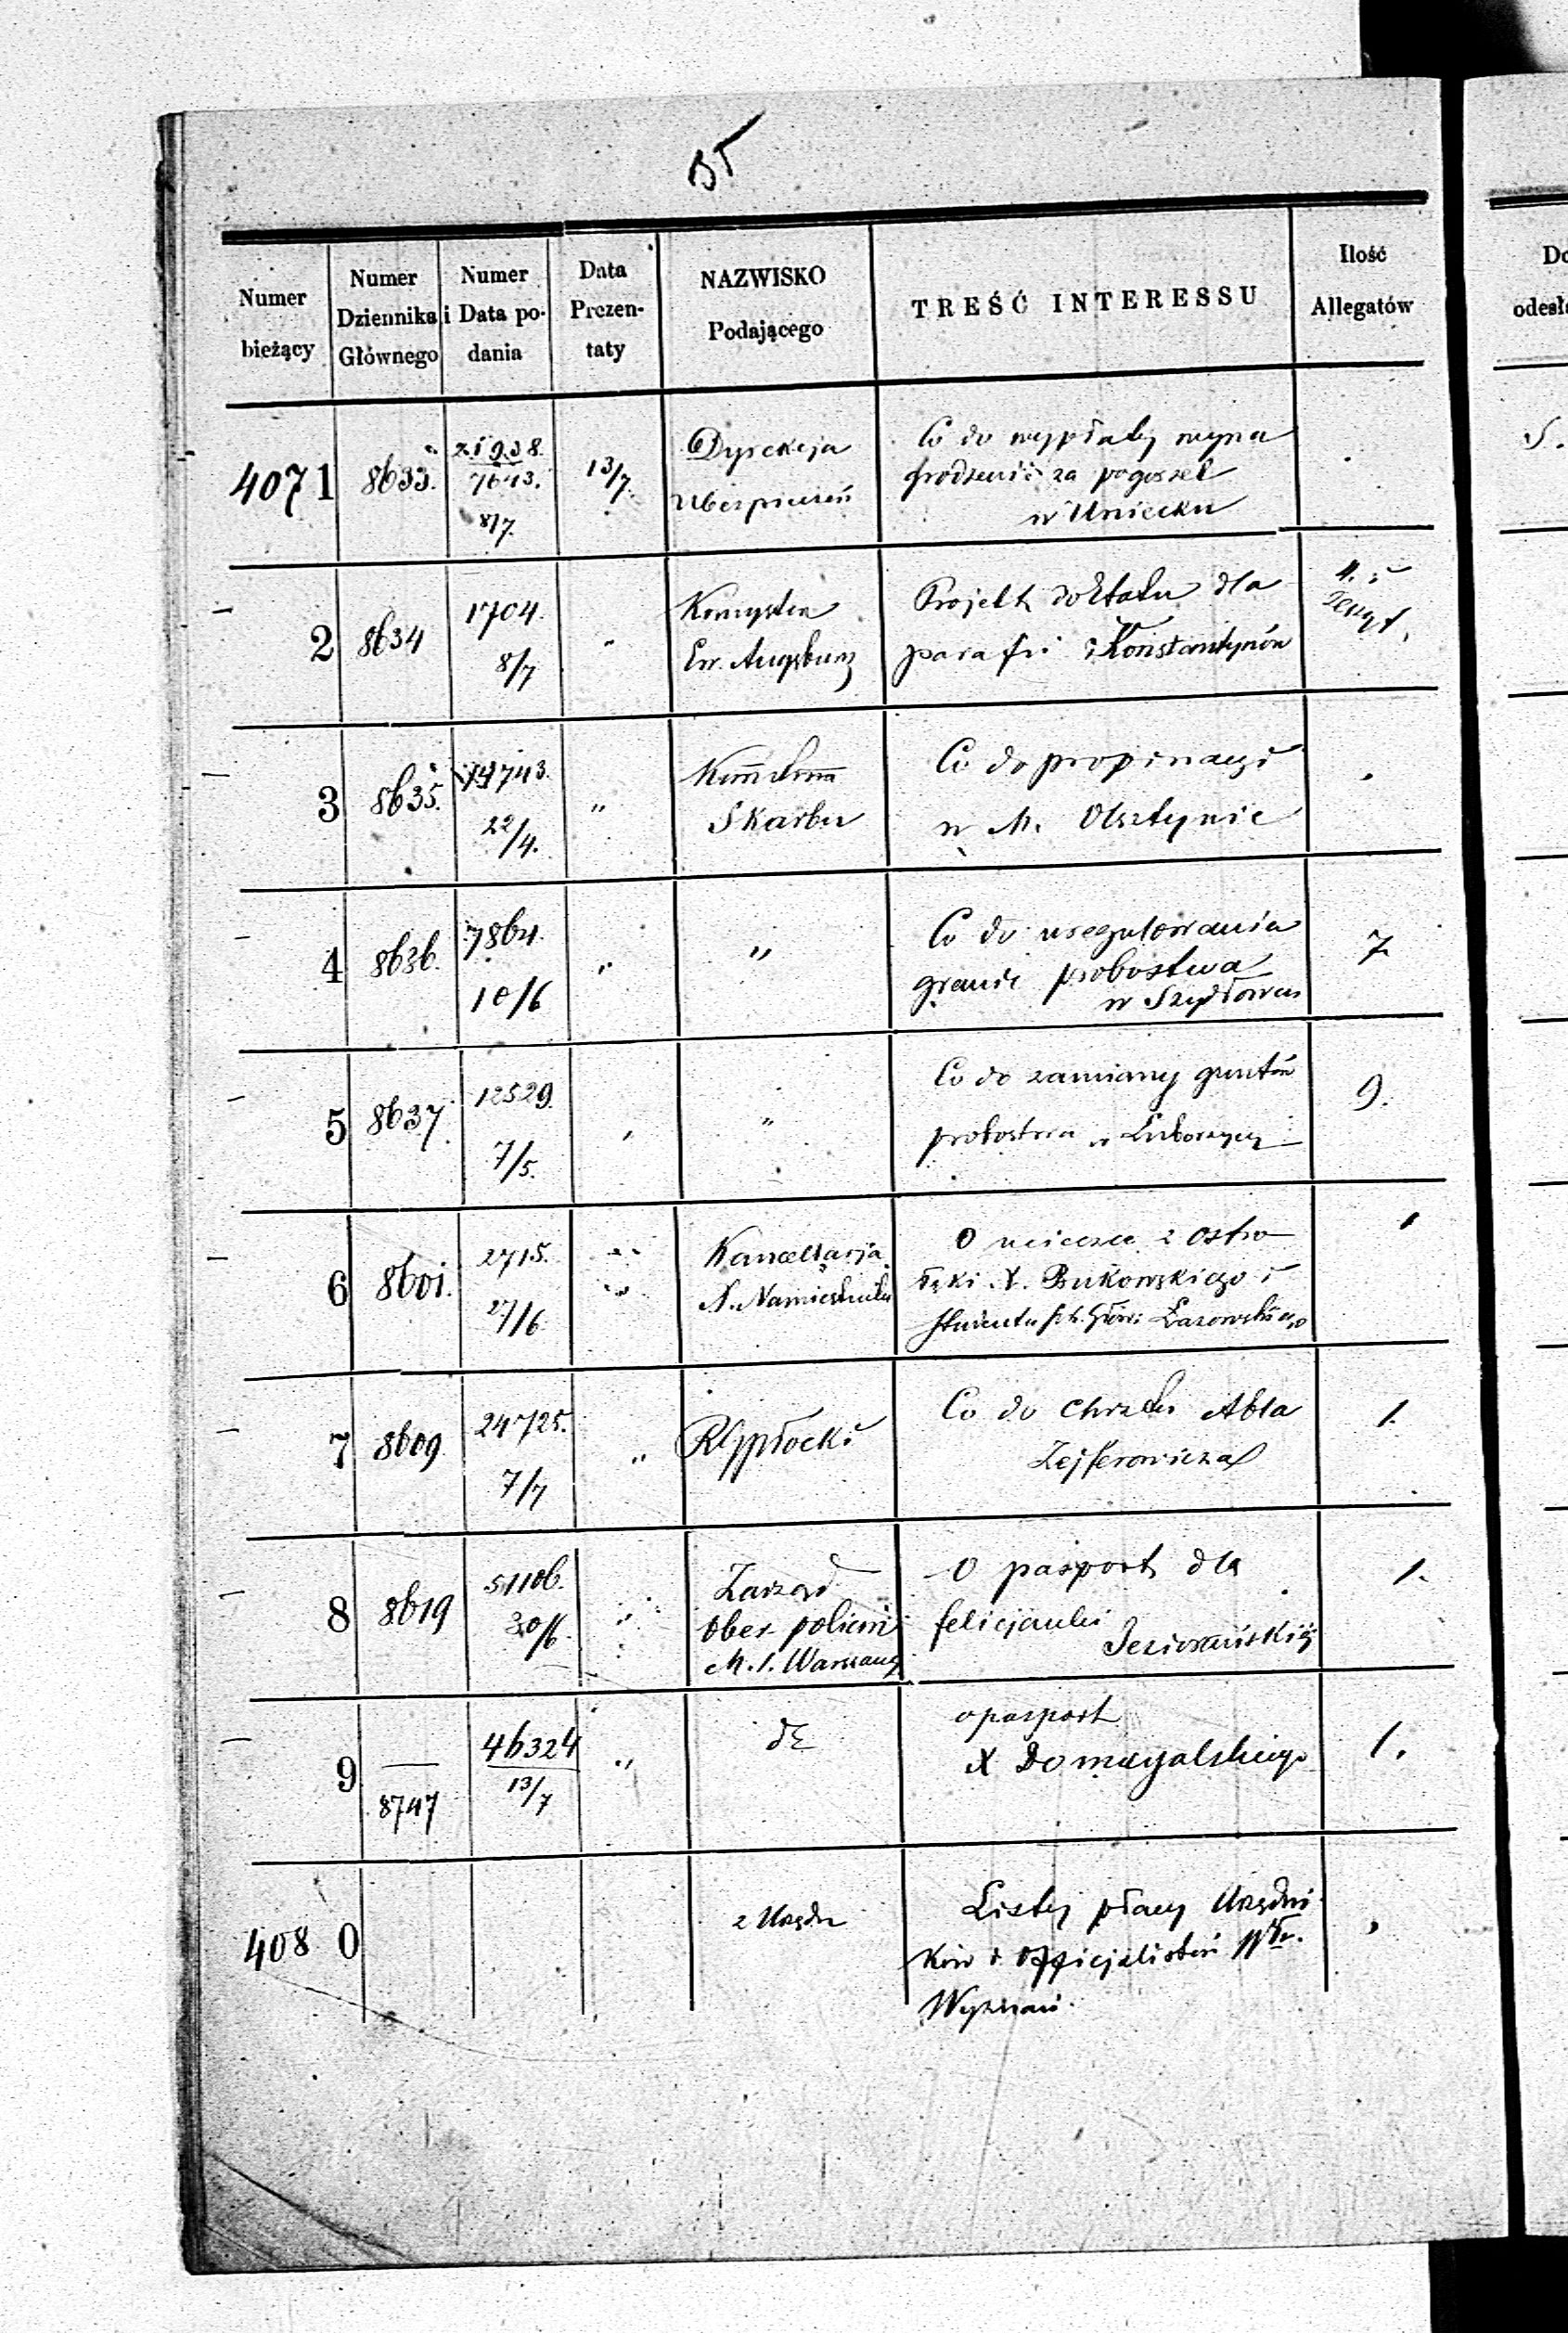 Numer bieżący
Numer Dziennika Głównego
Numer i Data podania
Data Prezentaty
NAZWISKO Podającego
TREŚĆ INTERESSU
Ilość Allegatów
4071 8633. 21938. 13/7. Dyrekcja Co do wypłaty wyna
7643. Ubezpieczeń grodzenia za pogorzel
8/7. w Uniecku
2 8634 1704. " Konsystorz Projekt do Etatu dla 4. i
8/7 Ew. Augsburg parafii Konstantynów zeszyt.
3 8635. 14743. " Co do propinacyi
22/4. Skarbu w M. Olsztynie
4 8636. 7864. " " Co do uregulowania 7
10/6 granic probostwa
w Szydłowcu
5 8637. 12529. " " Co do zamiany gruntów 9.
7/5. probostwa w Luborzycy
6 8601. 2715. " Kancellarja O ucieczce z Ostro 1
27/6 N. Namiestnika łęki X. Bukowskiego i
studenta Łazowskiego
7 8609. 24725. " RG Płocki Co do chrztu Abla 1.
7/7 Zejferowicza
8 8619 51106. " Zarząd O pasport dla 1.
30/6. Ober policm felicjanki
M. S. Warszawy Jeziorańskiej
9 — 46324 " dt o pasport 1.
8747 13/7 X Domagalskiego
4080 z Urzędu Listy płacy Urzędni
ków i Officjalistów
Wyznań.
Do
odesła
S.